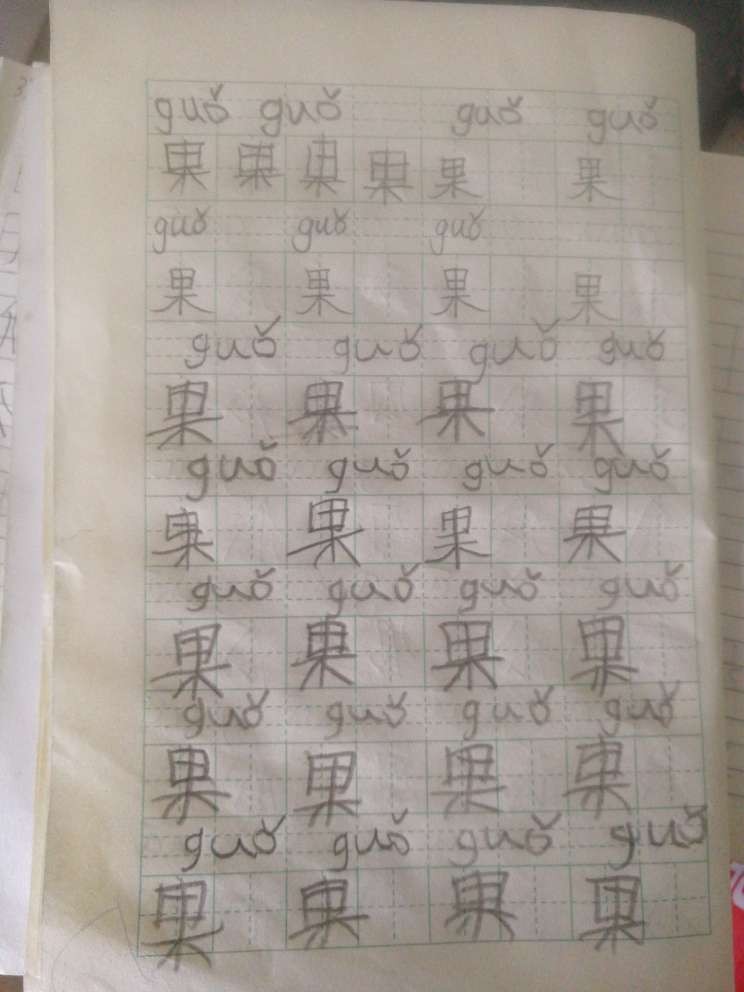 guǒ guǒ guǒ guǒ
果 果 果 果 果 果
guǒ guǒ guǒ
果 果 果 果
guǒ guǒ guǒ guǒ
果 果 果 果
guǒ guǒ guǒ guǒ
果 果 果 果
guǒ guǒ guǒ guǒ
果 果 果 果
guǒ guǒ guǒ guǒ
果 果 果 果
guǒ guǒ guǒ guǒ
果 果 果 果